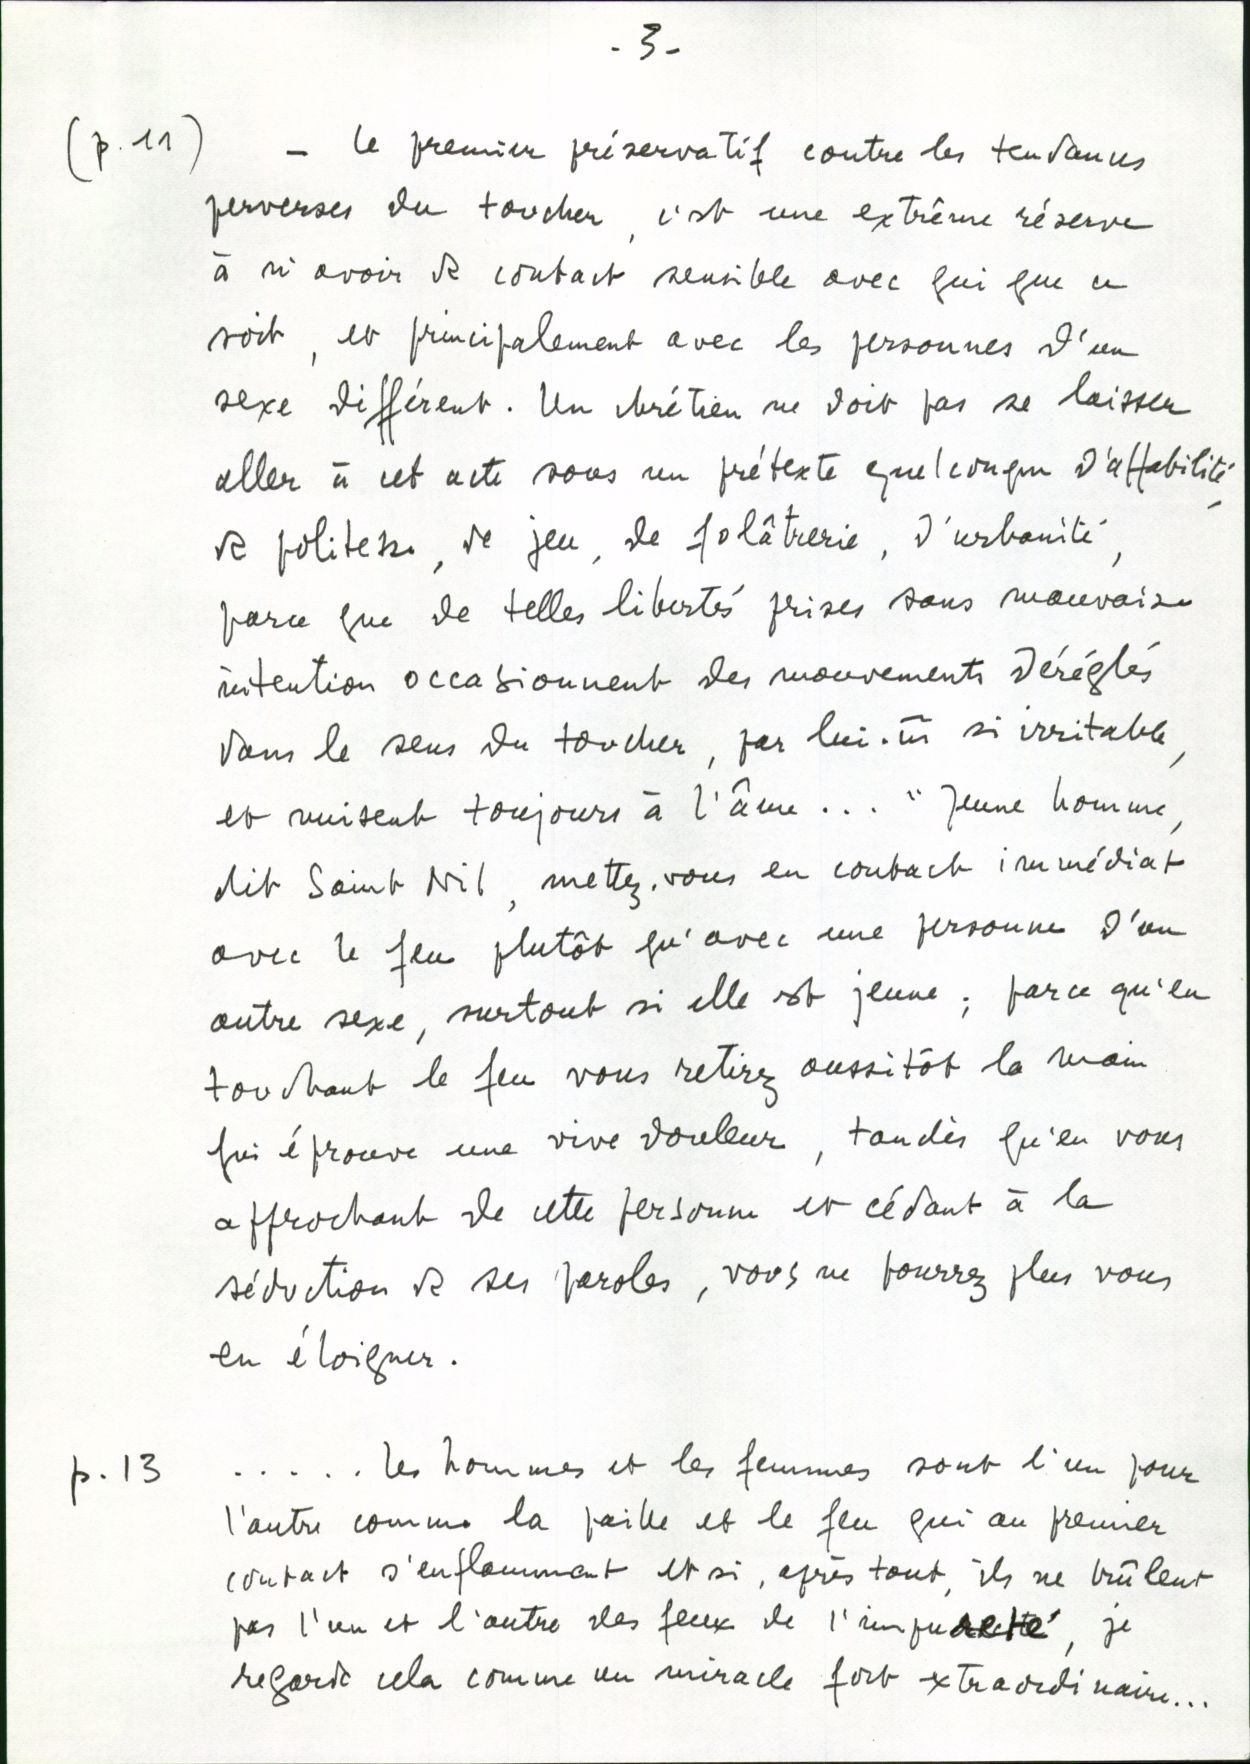 - 3 -
(p. 11) – Le premier préservatif contre les tendances
perverses du toucher, c'est une extrême réserve
à n'avoir de contact sensible avec qui que ce
soit, et principalement avec les personnes d'un
sexe différent. Un chrétien ne doit pas se laisser
aller à cet acte sous un prétexte quelconque d'affabilité,
de politesse, de jeu, de folâtrerie, d'urbanité,
parce que de telles libertés prises sans mauvaise
intention occasionnent des mouvements déréglés
dans le sens du toucher, par lui-m̄ si irritable,
et nuisent toujours à l'âme... "Jeune homme,
dit Saint Nil, mettez-vous en contact immédiat
avec le feu plutôt qu'avec une personne d'un
autre sexe, surtout si elle est jeune ; parce qu'en
touchant le feu vous retirez aussitôt la main
qui éprouve une vive douleur, tandis qu'en vous
approchant de cette personne et cédant à la
séduction de ses paroles, vous ne pourrez plus vous
en éloigner.
p. 13 ..... Les hommes et les femmes sont l'un pour
l'autre comme la paille et le feu qui au premier
contact s'enflamment et si, après tout, ils ne brûlent
pas l'un et l'autre des feux de l'impureté, je
regarde cela comme un miracle fort extraordinaire...